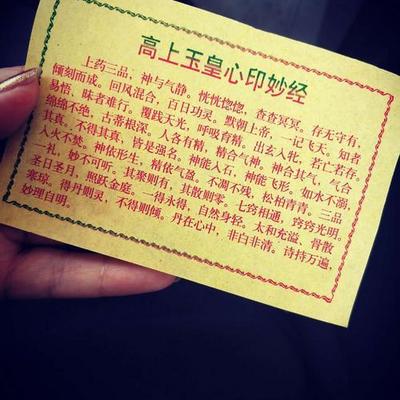 高上玉皇心印妙经
上药三品，神与气静。恍恍惚惚，查查冥冥。存无守有，
倾刻而成。回风混合，百日功灵。默朝上帝，一记飞天。知者
易悟，昧者难行。覆践天光，呼吸育精。出玄入牝，若亡若存。
绵绵不绝，古蒂根深。人各有精，精合气神，神合其气，气合
其真。不得其真，皆是强名。神能入石，神能飞形。如水不溺，
人火不焚。神依形生，精依气盈。不凋不残，松柏青青。三品
一礼，妙不可听。其聚则有，其散则零。七窍相通，窍窍光明。
圣日圣月，照跃金庭。一得永得，自然身轻。太和充溢、骨散
寒琼。得丹则灵，不得则倾。丹在心中，非白非清。诗持万遍，
妙理自明。